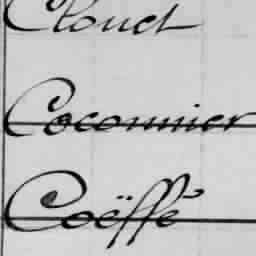 Clouet
Coconnier
Coëffé